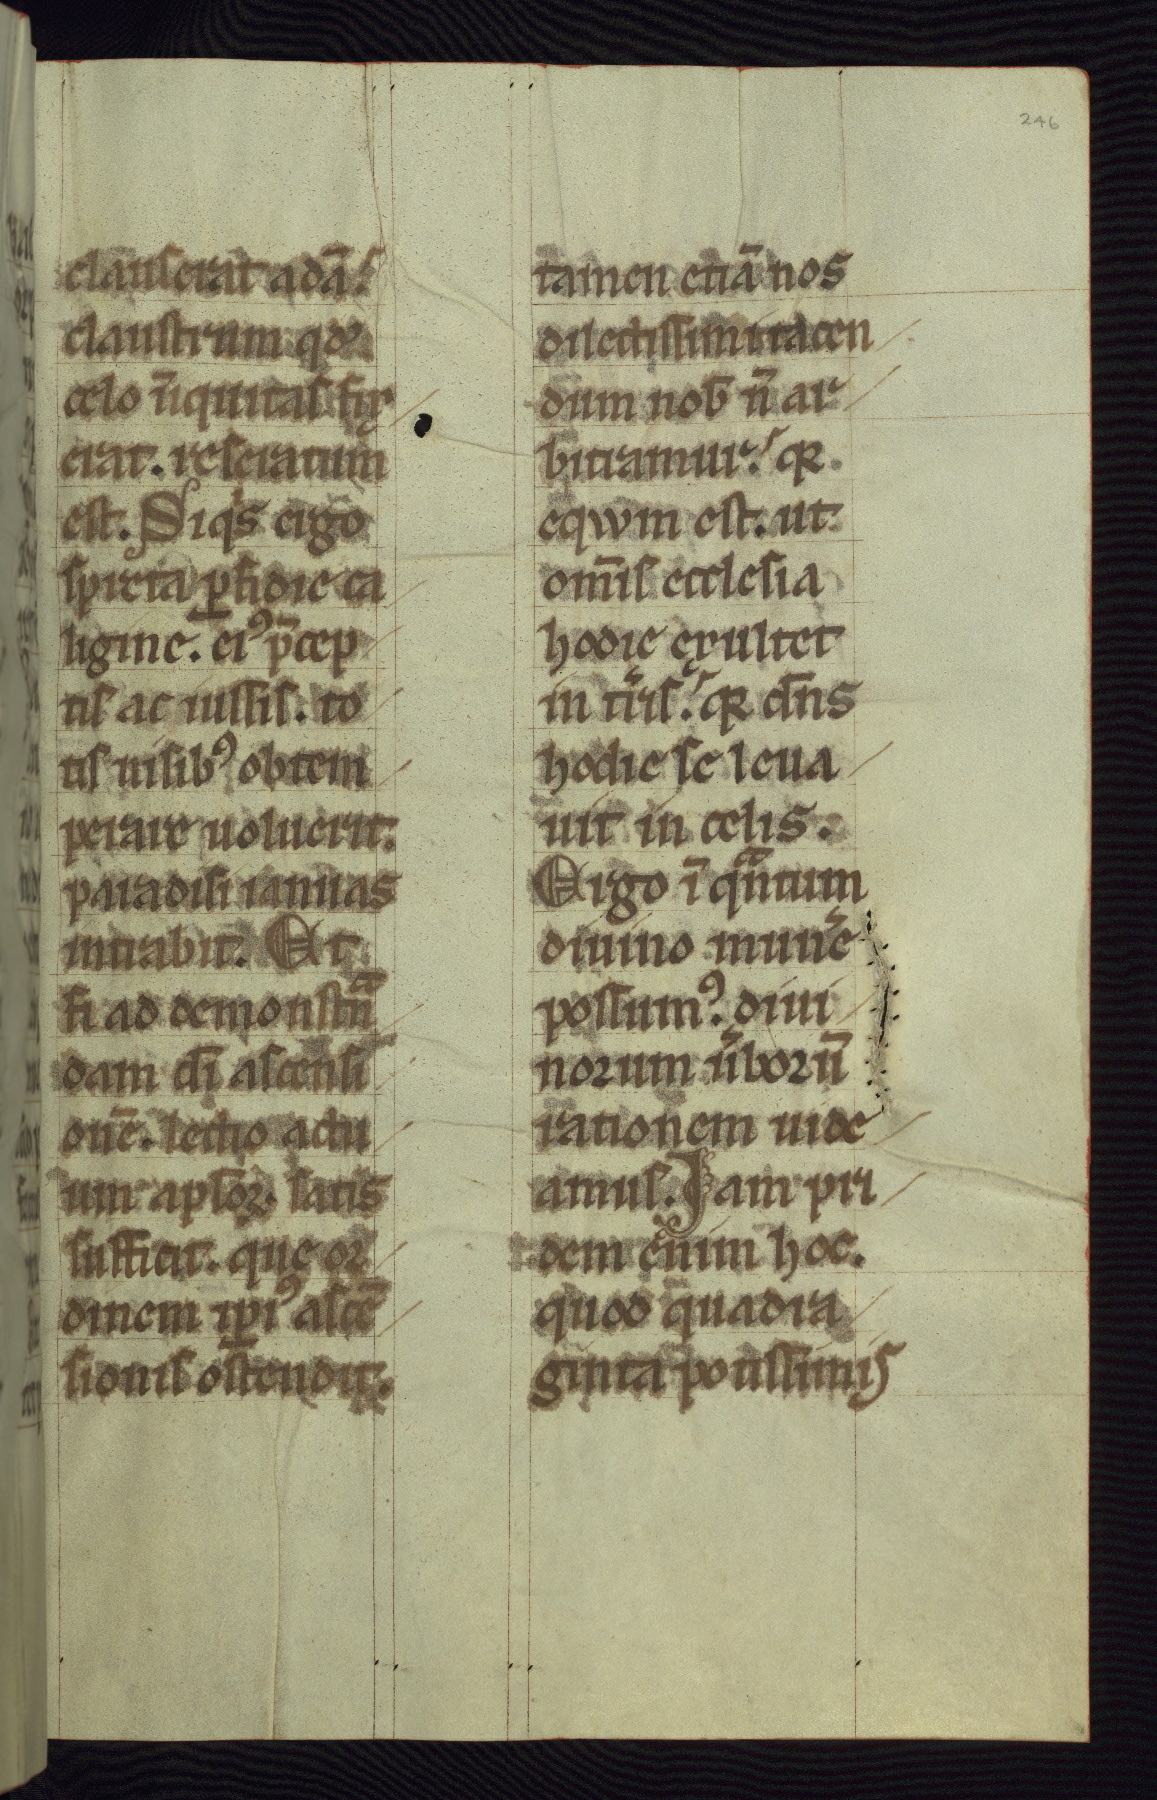 246
clauserat adā.
claustrum qď
celo n̄iquitas fix
erat. reseratum
est. Siqͥs ergo
spreta ꝑfidie ca
ligine. eiꝰ p̄cep
tis ac iussis. to
tis uisibꝰ obtem
perare uoluerit.
paradisi ianuas
intrabit. Et
si ad demonstᷓn
dam dn̄i ascensi
onē. lectio actu
um apl̄oꝝ. satis
sufficit. que or
dinem ip̄iꝰ ascē
sionis ostendit.
tamen etiā nos
dilectissimi tacen
dum nob̄ n̄ ar
bitramur. qꝛ.
eqwm est. ut
om̄is ecclesia
hodie exultet
in tr̄is. qꝛ dn̄s
hodie se leua
uit in celis.
Ergo ī qᷓntum
diuino mun̄e
possumꝰ. diui
norum u̓borū
rationem uide
amus. Iam pri
dem enim hoc.
quod quadra
ginta potissimis